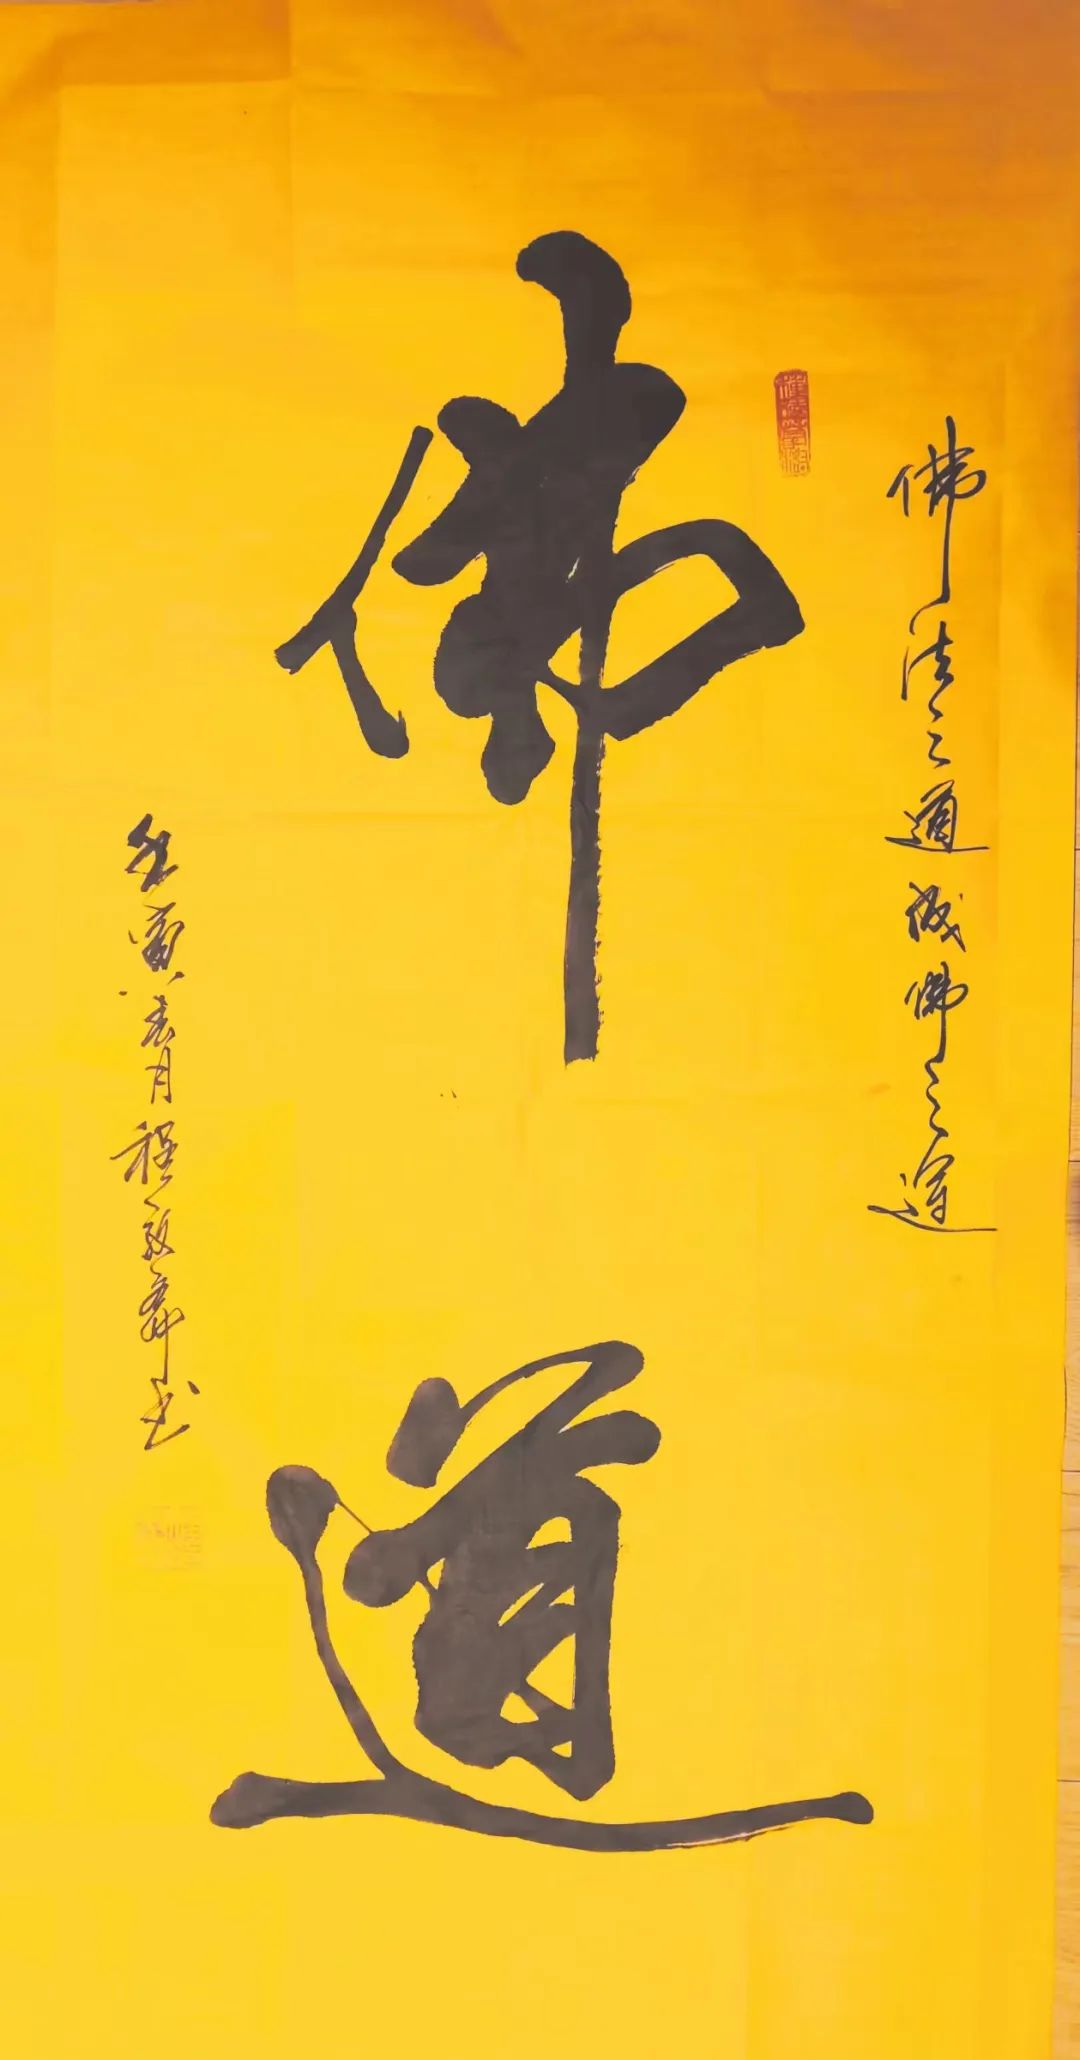 佛法之道成佛之道
佛道
壬寅春月程敬舜书